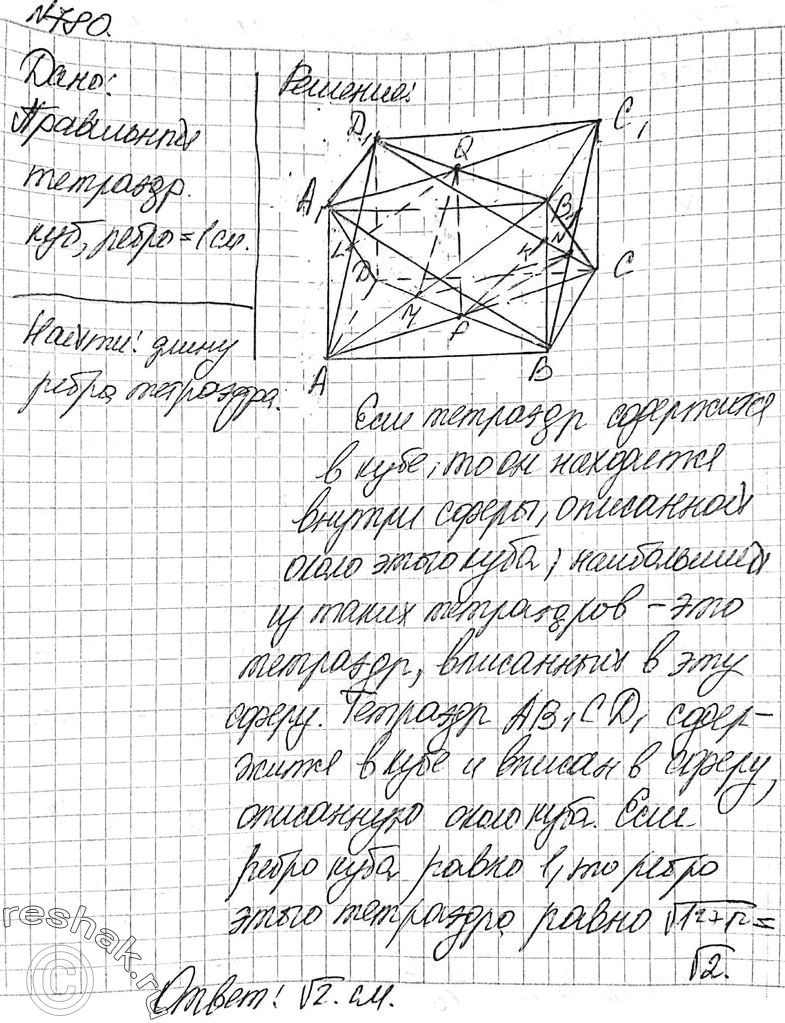 №780.
Дано:
Правильный
тетраэдр.
куб, ребро = 1 см.
Найти: длину
ребра тетраэдра.
Решение:
D₁ Q C₁
A₁ B₁
L K N
D C
M P
A B
Если тетраэдр содержится
в кубе, то он находится
внутри сферы, описанной
около этого куба; наибольший
из таких тетраэдров – это
тетраэдр, вписанный в эту
сферу. Тетраэдр AB₁CD₁ содер-
жится в кубе и вписан в сферу,
описанную около куба. Если
ребро куба равно 1, то ребро
этого тетраэдра равно √1²+1² =
√2.
Ответ: √2. см.
reshak.ru
©